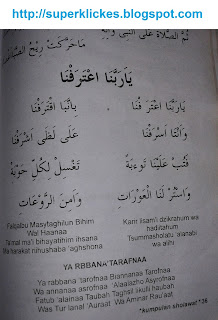 http://superklickes.blogspot.com
ثُمَّ الصَّلَاةُ عَلَى النَّبِي وَآلِهِ
مَاحَرَكَتْ رِيْحُ الصَّبَا
يَارَبَّنَا اعْتَرَفْنَا
يَارَبَّنَا اعْتَرَفْنَا بِاَنَّنَا اقْتَرَفْنَا
وَاَنَّنَا اَسْرَفْنَا عَلَى لَظَى اَشْرَفْنَا
فَتُبْ عَلَيْنَا تَوْبَةً تَغْسِلْ لِكُلِّ حَوْبَةْ
وَاسْتُرْ لَنَا الْعَوْرَاتِ وَآمِنِ الرَّوْعَاتِ
Faltjalbu Masytaghilun Bihim
Wal Haanaa
Ta'mal ma'i bihayatihim ihsana
Wa harakat riihushaba 'aghshona
Karri lisami'i dzikrahum wa
hadiitahum
Tsummasholatu 'alanabi
wa alihi
YA RBBANA TARAFNAA
Ya rabbana 'tarofnaa Biannanaa Tarofnaa
Wa annanaa asrofnaa 'Alaalazho Asyrofnaa
Fatub 'alainaa Taubah Taghsil likulli haubah
Was Tur lanal 'Auraat Wa Aminar Rau'aat
*kumpulan sholawat *36